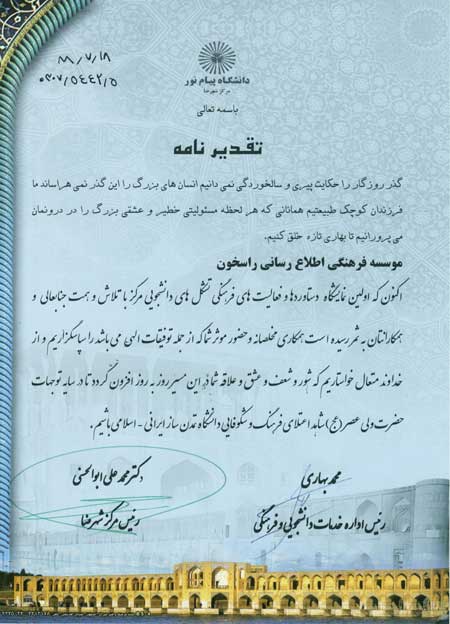 ۸۸/۷/۱۸
دانشگاه پیام نور
مرکز شهرضا
باسمه تعالی
تقدیر نامه
گذر روزگار را حکایت پیری و سالخوردگی نمی دانیم انسان های بزرگ را این گذر نمی هراساند ما
فرزندان کوچک طبیعتیم همانانی که هر لحظه مسئولیتی خطیر و عشقی بزرگ را در درونمان
می پرورانیم تا بهاری تازه خلق کنیم.
موسسه فرهنگی اطلاع رسانی راسخون
اکنون که اولین نمایشگاه دستاوردها و فعالیت های فرهنگی تشکل های دانشجویی مرکز با تلاش و همت جنابعالی و
همکارانتان به ثمر رسیده است همکاری مخلصانه و حضور موثر شما که از جمله توفیقات الهی می باشد را سپاسگزاریم و از
خداوند متعال خواستاریم که شور و شعف و عشق و علاقه شما در این مسیر روز به روز افزون گردد تا در سایه توجهات
حضرت ولی عصر (عج) شاهد اعتلای فرهنگ و شکوفایی دانشگاه تمدن ساز ایرانی - اسلامی باشیم.
محمد بهاری
رئیس اداره خدمات دانشجویی و فرهنگی
دکتر محمد علی ابوالحسنی
رئیس مرکز شهرضا